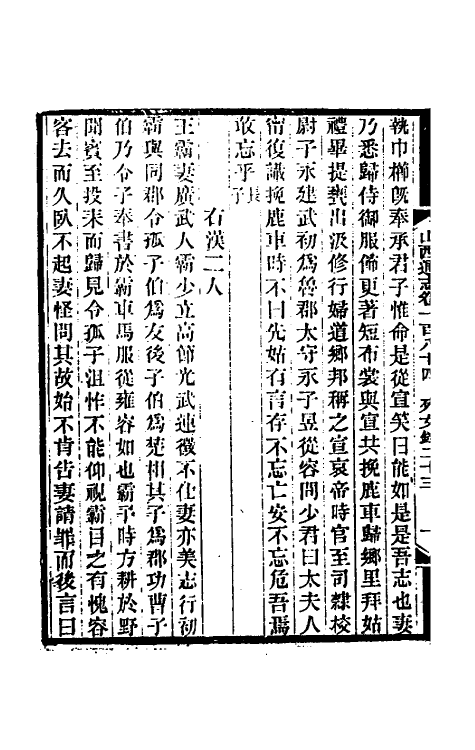 執巾櫛旣奉承君子惟命是從宣笑曰能如是是吾志也妻
乃悉歸侍御服飾更著短布裳與宣共挽鹿車歸鄉里拜姑
禮畢提甕出汲修行婦道鄉邦稱之宣哀帝時官至司隸校
尉子永建武初爲魯郡太守永子昱從容問少君曰太夫人
甯復識挽鹿車時不曰先姑有言存不忘亡安不忘危吾焉
敢忘乎長子
右漢二人
王霸妻廣武人霸少立高節光武連徵不仕妻亦美志行初
霸與同郡令孤子伯爲友後子伯爲楚相其子爲郡功曹子
伯乃令子奉書於霸車馬服從雍容如也霸子時方耕於野
聞賓至投耒而歸見令孤子沮怍不能仰視霸目之有愧容
客去而久臥不起妻怪問其故始不肯告妻請罪而後言曰
山西通志卷一百八十四 列女錄二十三 一